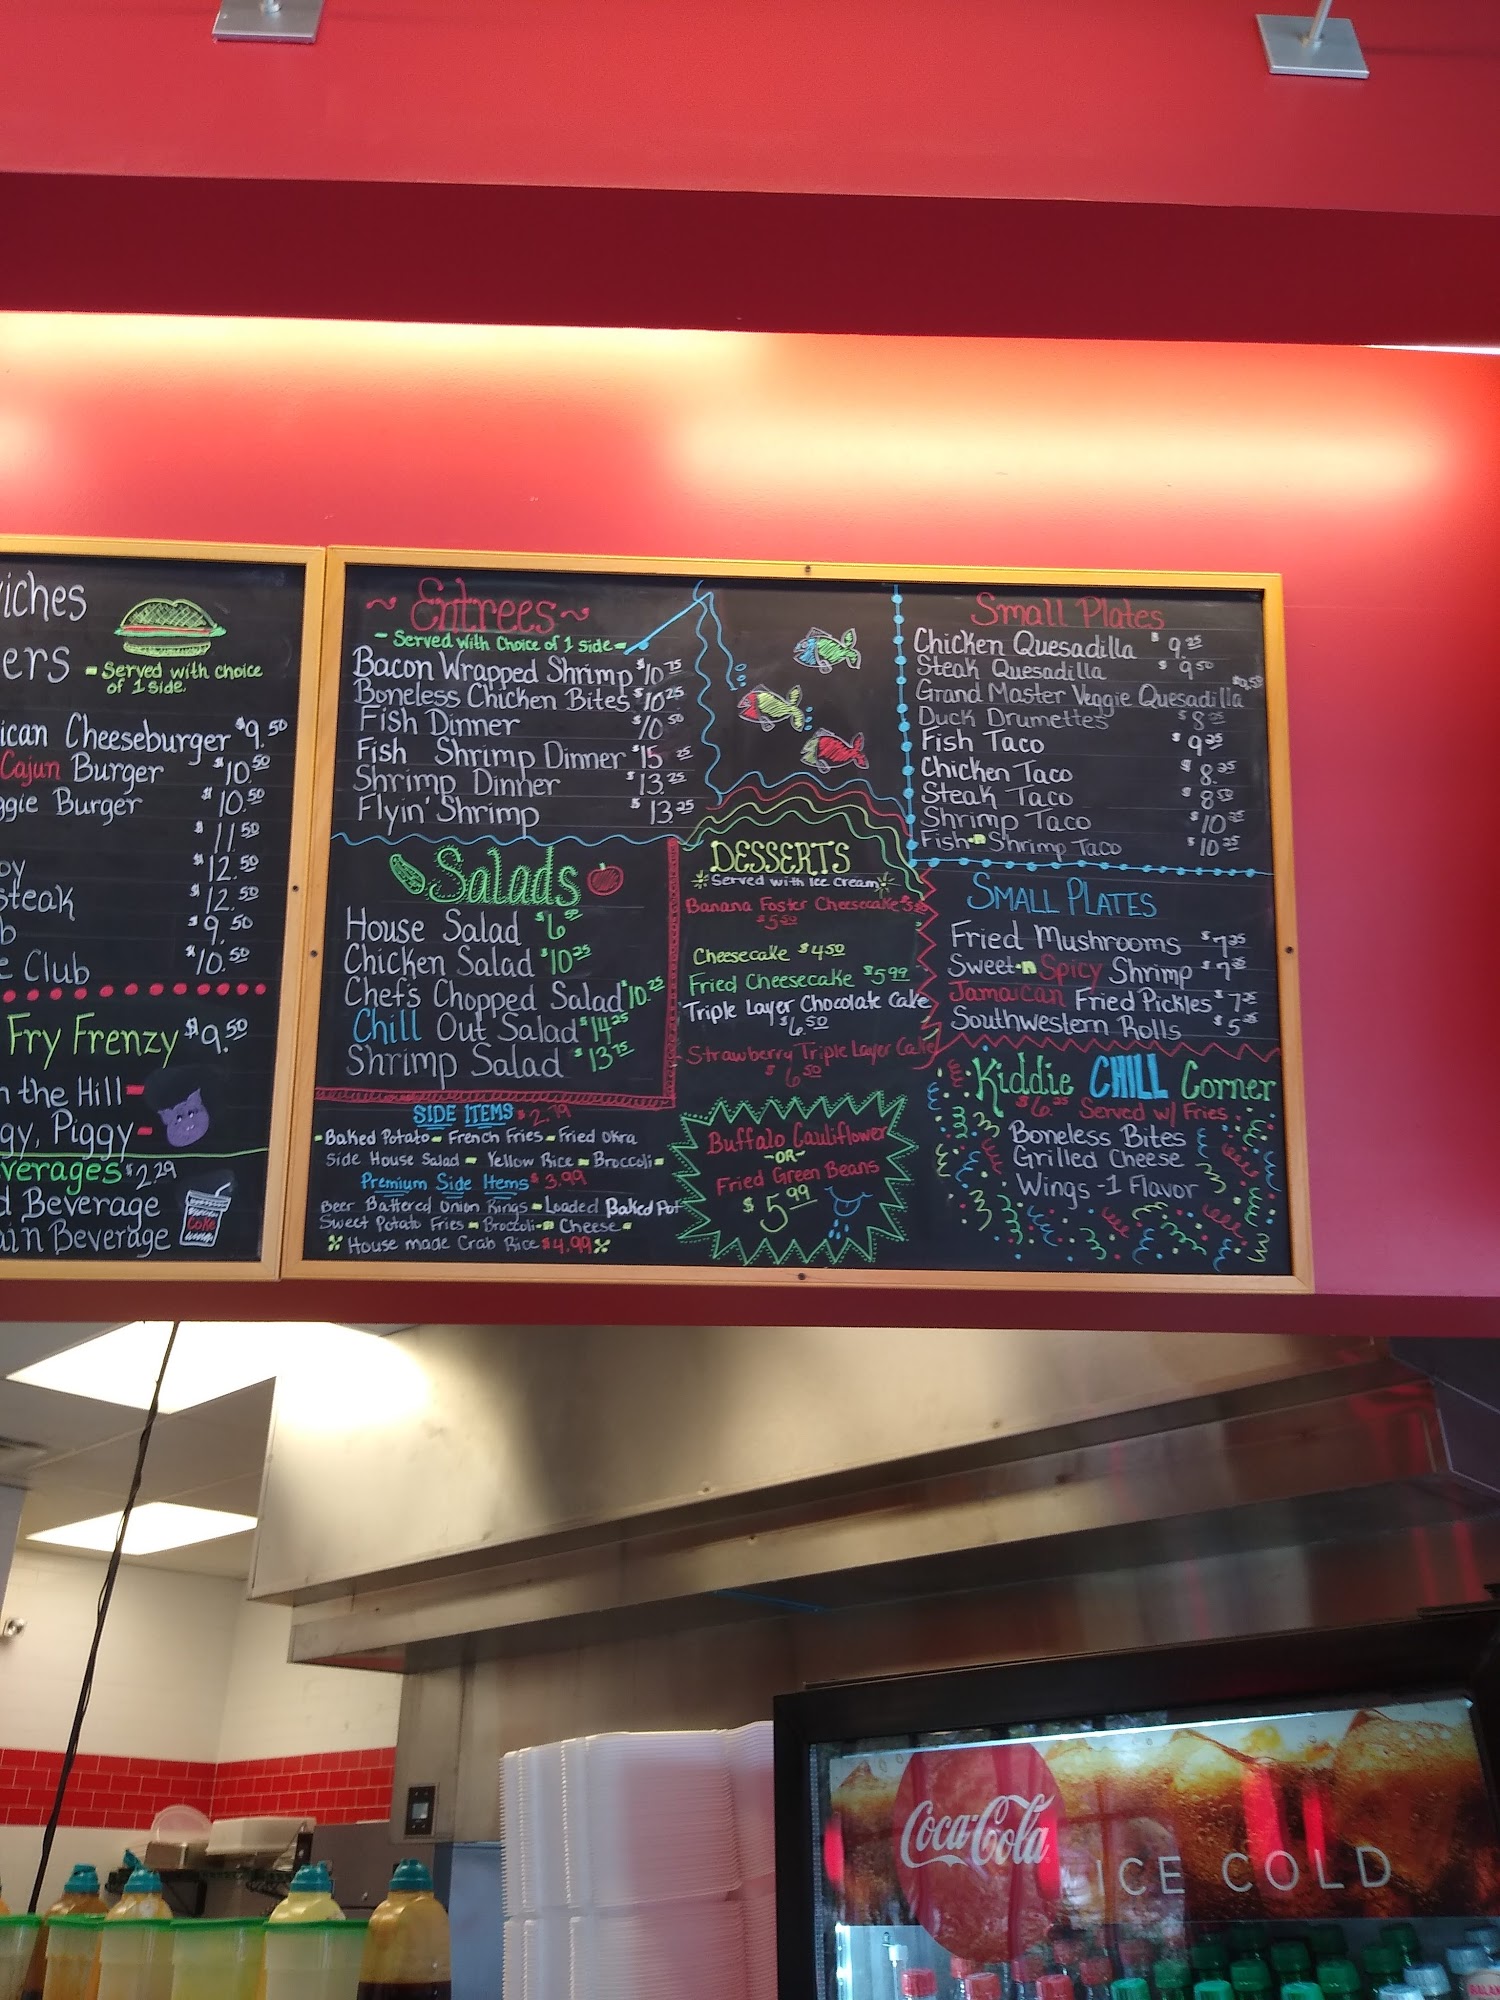 ers
- Served with choice
of 1 side.
ican Cheeseburger $9.50
Cajun Burger $10.50
ggie Burger $10.50
$11.50
oy $12.50
steak $12.50
b $9.50
e Club $10.50
Fry Frenzy $9.50
n the Hill -
gy, Piggy -
verages $2.29
d Beverage
ain Beverage
Coke
~ Entrees ~
- Served with Choice of 1 side -
Bacon Wrapped Shrimp $10.75
Boneless Chicken Bites $10.25
Fish Dinner $10.50
Fish Shrimp Dinner $15.25
Shrimp Dinner $13.25
Flyin' Shrimp $13.25
Salads
House Salad
Chicken Salad $10.25
Chef's Chopped Salad $10.25
Chill Out Salad $14.25
Shrimp Salad $13.75
SIDE ITEMS $2.79
- Baked Potato - French Fries - Fried Okra
Side House Salad - Yellow Rice - Broccoli -
Premium Side Items $3.99
Beer Battered Onion Rings - Loaded Baked Pot
Sweet Potato Fries - Broccoli -n- Cheese -
House made Crab Rice $4.99
DESSERTS
Served with Ice Cream
Banana Foster Cheesecake
$5.50
Cheesecake $4.50
Fried Cheesecake $5.99
Triple Layer Chocolate Cake
$6.50
Strawberry Triple Layer Cake
$6.50
Buffalo Cauliflower
-OR-
Fried Green Beans
$5.99
Small Plates
Chicken Quesadilla $9.25
Steak Quesadilla $9.50
Grand Master Veggie Quesadilla
Duck Drumettes
Fish Taco $9.25
Chicken Taco
Steak Taco $8.50
Shrimp Taco
Fish -n- Shrimp Taco $10.25
SMALL PLATES
Fried Mushrooms $7.25
Sweet -n- Spicy Shrimp
Jamaican Fried Pickles
Southwestern Rolls
Kiddie CHILL Corner
$6.25 Served w/ Fries
Boneless Bites
Grilled Cheese
Wings - 1 Flavor
Coca-Cola
ICE COLD